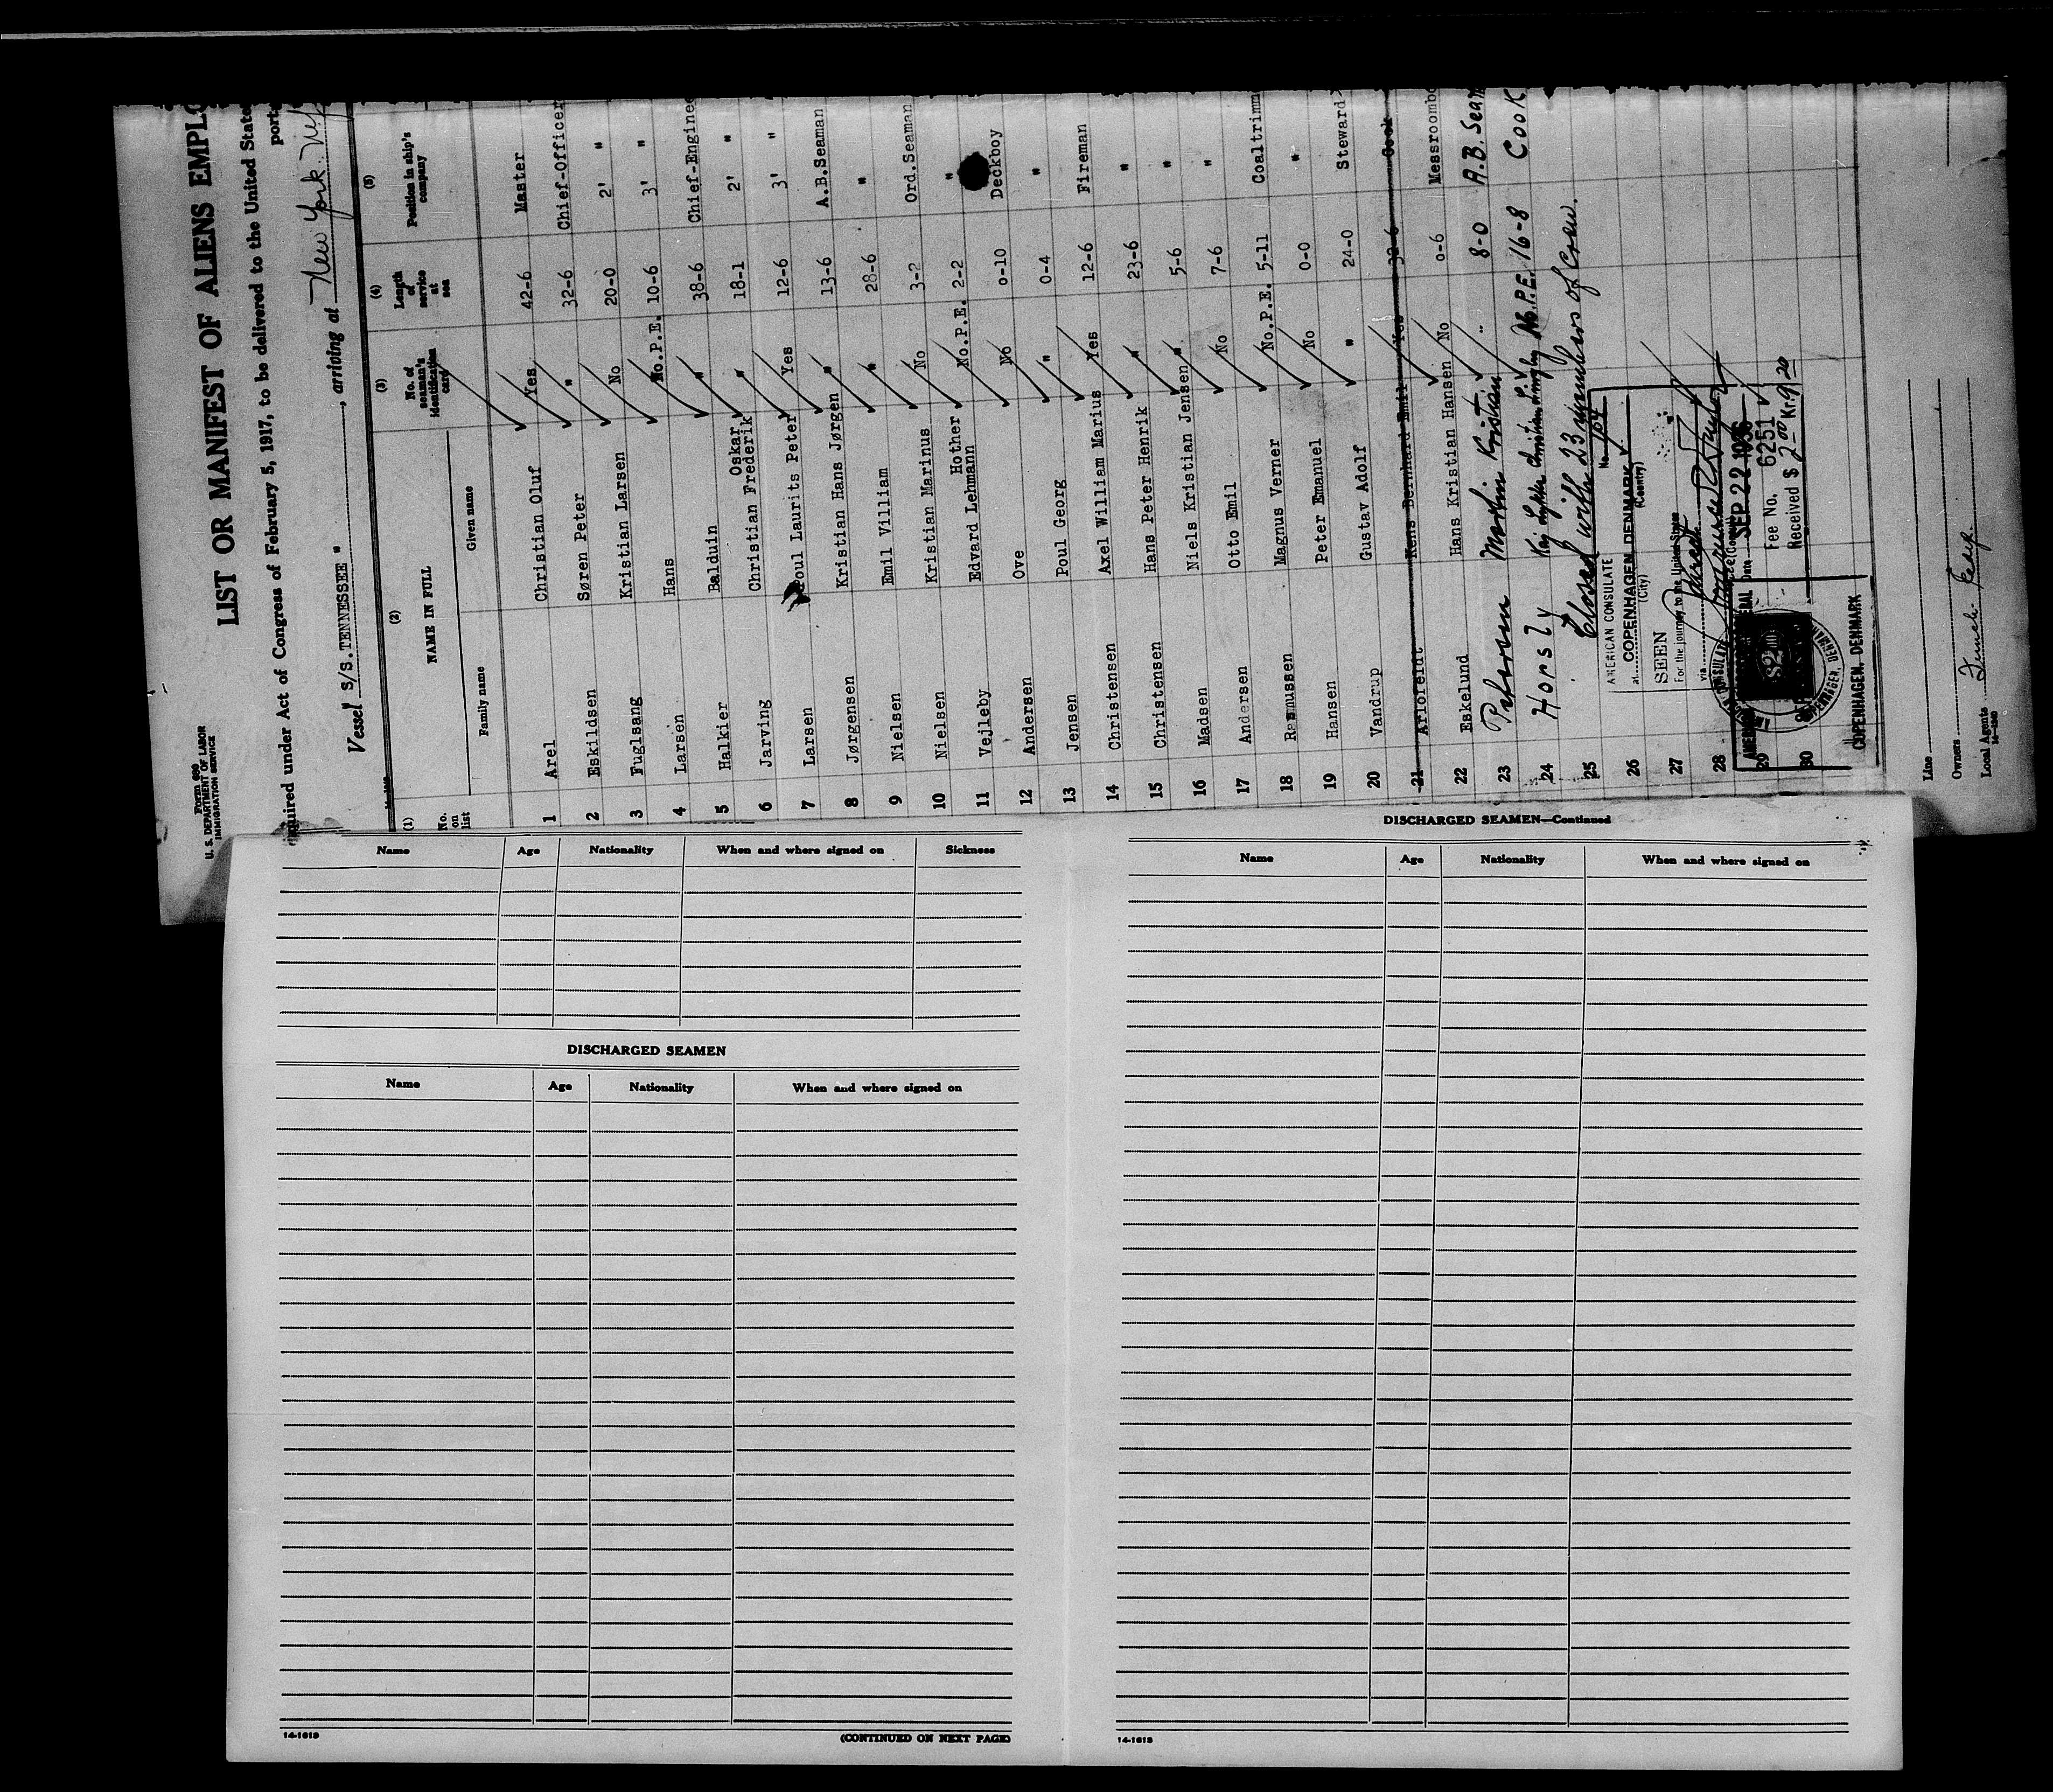 Form 689
U. S. DEPARTMENT OF LABOR
IMMIGRATION SERVICE
LIST OR MANIFEST OF ALIENS EMPLO
quired under Act of Congress of February 5, 1917, to be delivered to the United State
port
Vessel S/S. TENNESSEE " , arriving at New York.
(1) (2) (3) (4) (5)
No. on list NAME IN FULL No. of seaman's identification card Length of service at sea Position in ship's company
Family name Given name
1 Arel Christian Oluf Yes 42-6 Master
2 Eskildsen Søren Peter " 32-6 Chief-Officer
3 Fuglsang Kristian Larsen No 20-0 2' "
4 Larsen Hans No.P.E. 10-6 3' "
5 Halkier Balduin " 38-6 Chief-Enginee
6 Jarving Christian Frederik Oskar " 18-1 2' "
7 Larsen Poul Laurits Peter Yes 12-6 3' "
8 Jørgensen Kristian Hans Jørgen " 13-6 A.B.Seaman
9 Nielsen Emil Villiam " 28-6 "
10 Nielsen Kristian Marinus No 3-2 Ord.Seaman
11 Vejleby Edvard Lehmann Hother No.P.E. 2-2 "
12 Andersen Ove No 0-10 Deckboy
13 Jensen Poul Georg " 0-4 "
14 Christensen Axel William Marius Yes 12-6 Fireman
15 Christensen Hans Peter Henrik " 23-6 "
16 Madsen Niels Kristian Jensen " 5-6 "
17 Andersen Otto Emil No 7-6 "
18 Rasmussen Magnus Verner No.P.E. 5-11 Coaltrimm
19 Hansen Peter Emanuel No 0-0 "
20 Vandrup Gustav Adolf " 24-0 Steward
21 Bernhard Emil Yes 32-6 Cook
22 Eskelund Hans Kristian Hansen No 0-6 Messroombo
23 Petersen Martin Kristian " 8-0 A.B. Seam
24 Kaj No.P.E. 16-8 Cook
25 Closed with 23 members of Crew.
26
27
28
29
30
AMERICAN CONSULATE No. 104
at COPENHAGEN, DENMARK
(City) (Country)
SEEN
For the journey to the United States
via
Date SEP 22 1936
Fee No. 6251
Received $ 2.00 Kr 9.20
COPENHAGEN, DENMARK
Line
Owners
Local Agents
14-1240
Name Age Nationality When and where signed on Sickness
DISCHARGED SEAMEN
Name Age Nationality When and where signed on
14-1613 (CONTINUED ON NEXT PAGE)
DISCHARGED SEAMEN—Continued
Name Age Nationality When and where signed on
14-1613